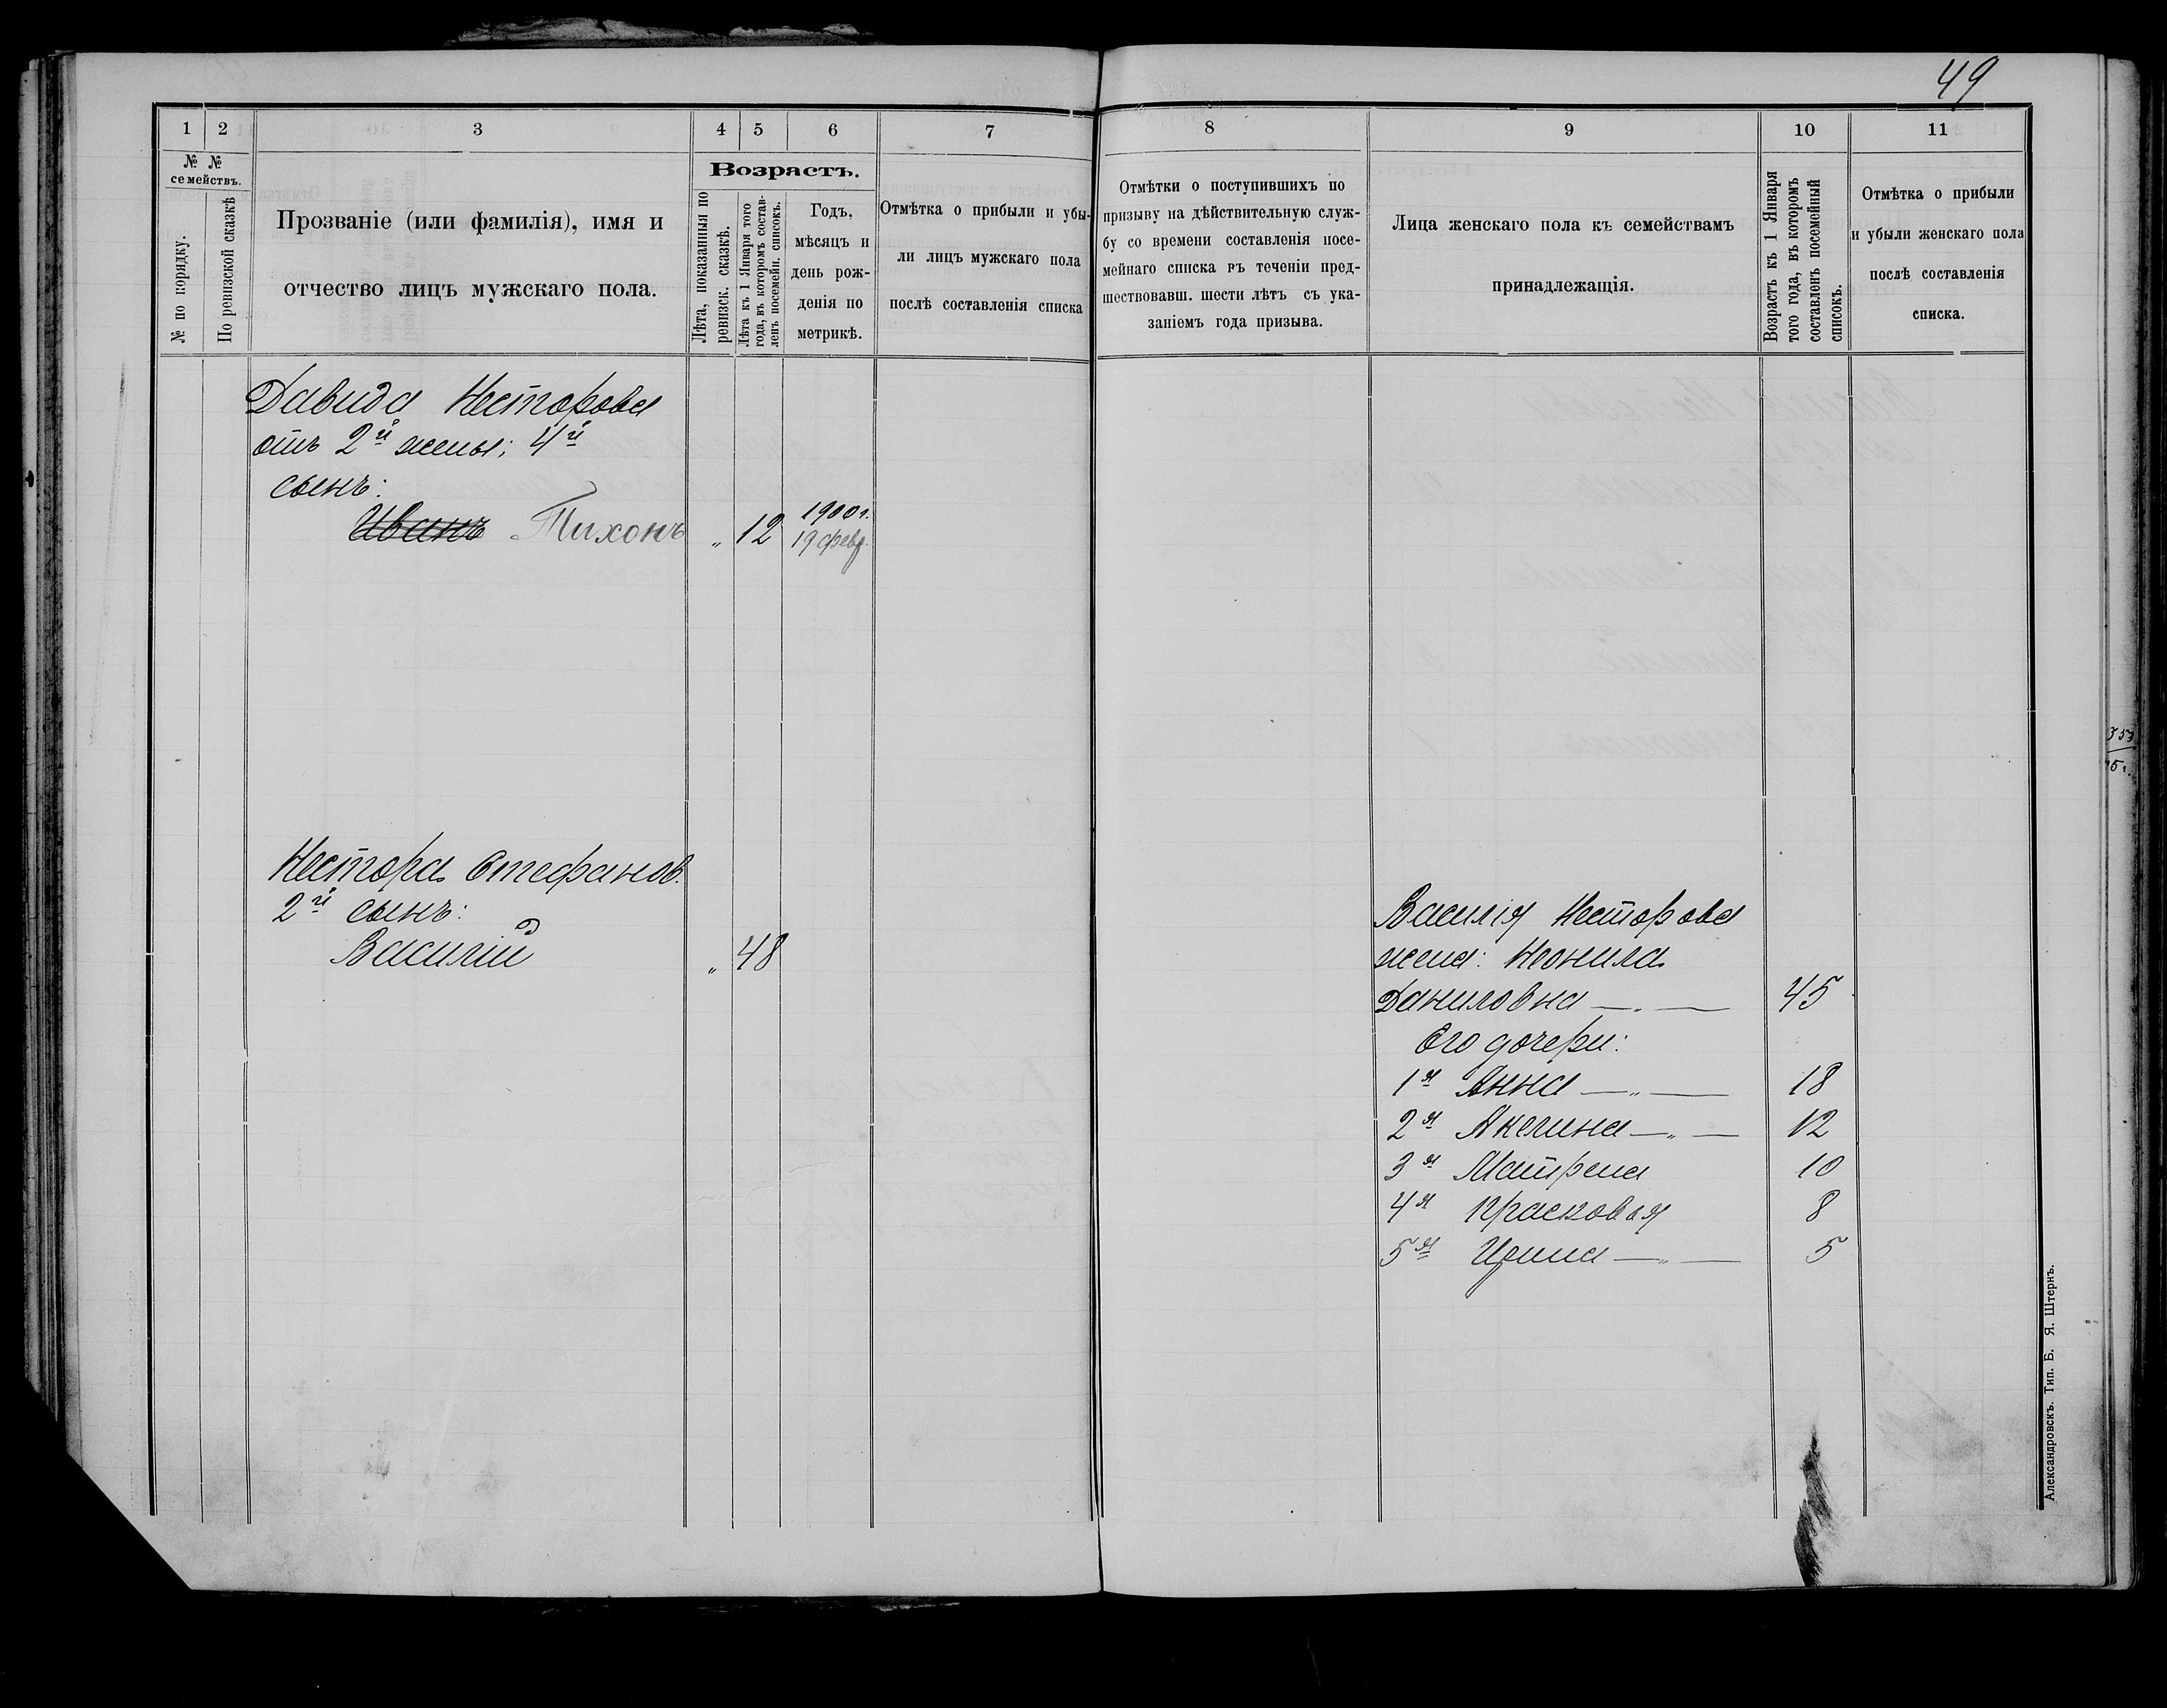 49
1 2 3 4 5 6 7
№ № семействъ.
№ по порядку.
По ревизской сказкѣ
Прозваніе (или фамилія), имя и
отчество лицъ мужскаго пола.
Возрастъ.
Лѣта, показанныя по
ревизск. сказкѣ.
Лѣта къ 1 Января того
года, въ которомъ состав-
ленъ посемейн. списокъ.
Годъ,
мѣсяцъ и
день рож-
денія по
метрикѣ.
Отмѣтка о прибыли и убы-
ли лицъ мужскаго пола
послѣ составленія списка
Давида Несторова
отъ 2й жены; 4й
сынъ:
Иванъ Тихонъ „ 12 1900 г.
19 февр.
Нестора Стефанов.
2й сынъ:
Василій „ 48
8 9 10 11
Отмѣтки о поступившихъ по
призыву на дѣйствительную служ-
бу со времени составленія посе-
мейнаго списка въ теченіи пред-
шествовавш. шести лѣтъ съ ука-
заніемъ года призыва.
Лица женскаго пола къ семействамъ
принадлежащія.
Возрастъ къ 1 Января
того года, въ которомъ
составленъ посемейный
списокъ.
Отмѣтка о прибыли
и убыли женскаго пола
послѣ составленія
списка.
Василія Несторова
жена: Неонила
Даниловна —„— 45
Его дочери:
1я Анна —„— 18
2я Акелина —„— 12
3я Матрена 10
4я Прасковая 8
5я Ирина —„— 5
Александровскъ. Тип. Б. Я. Штернъ.
353